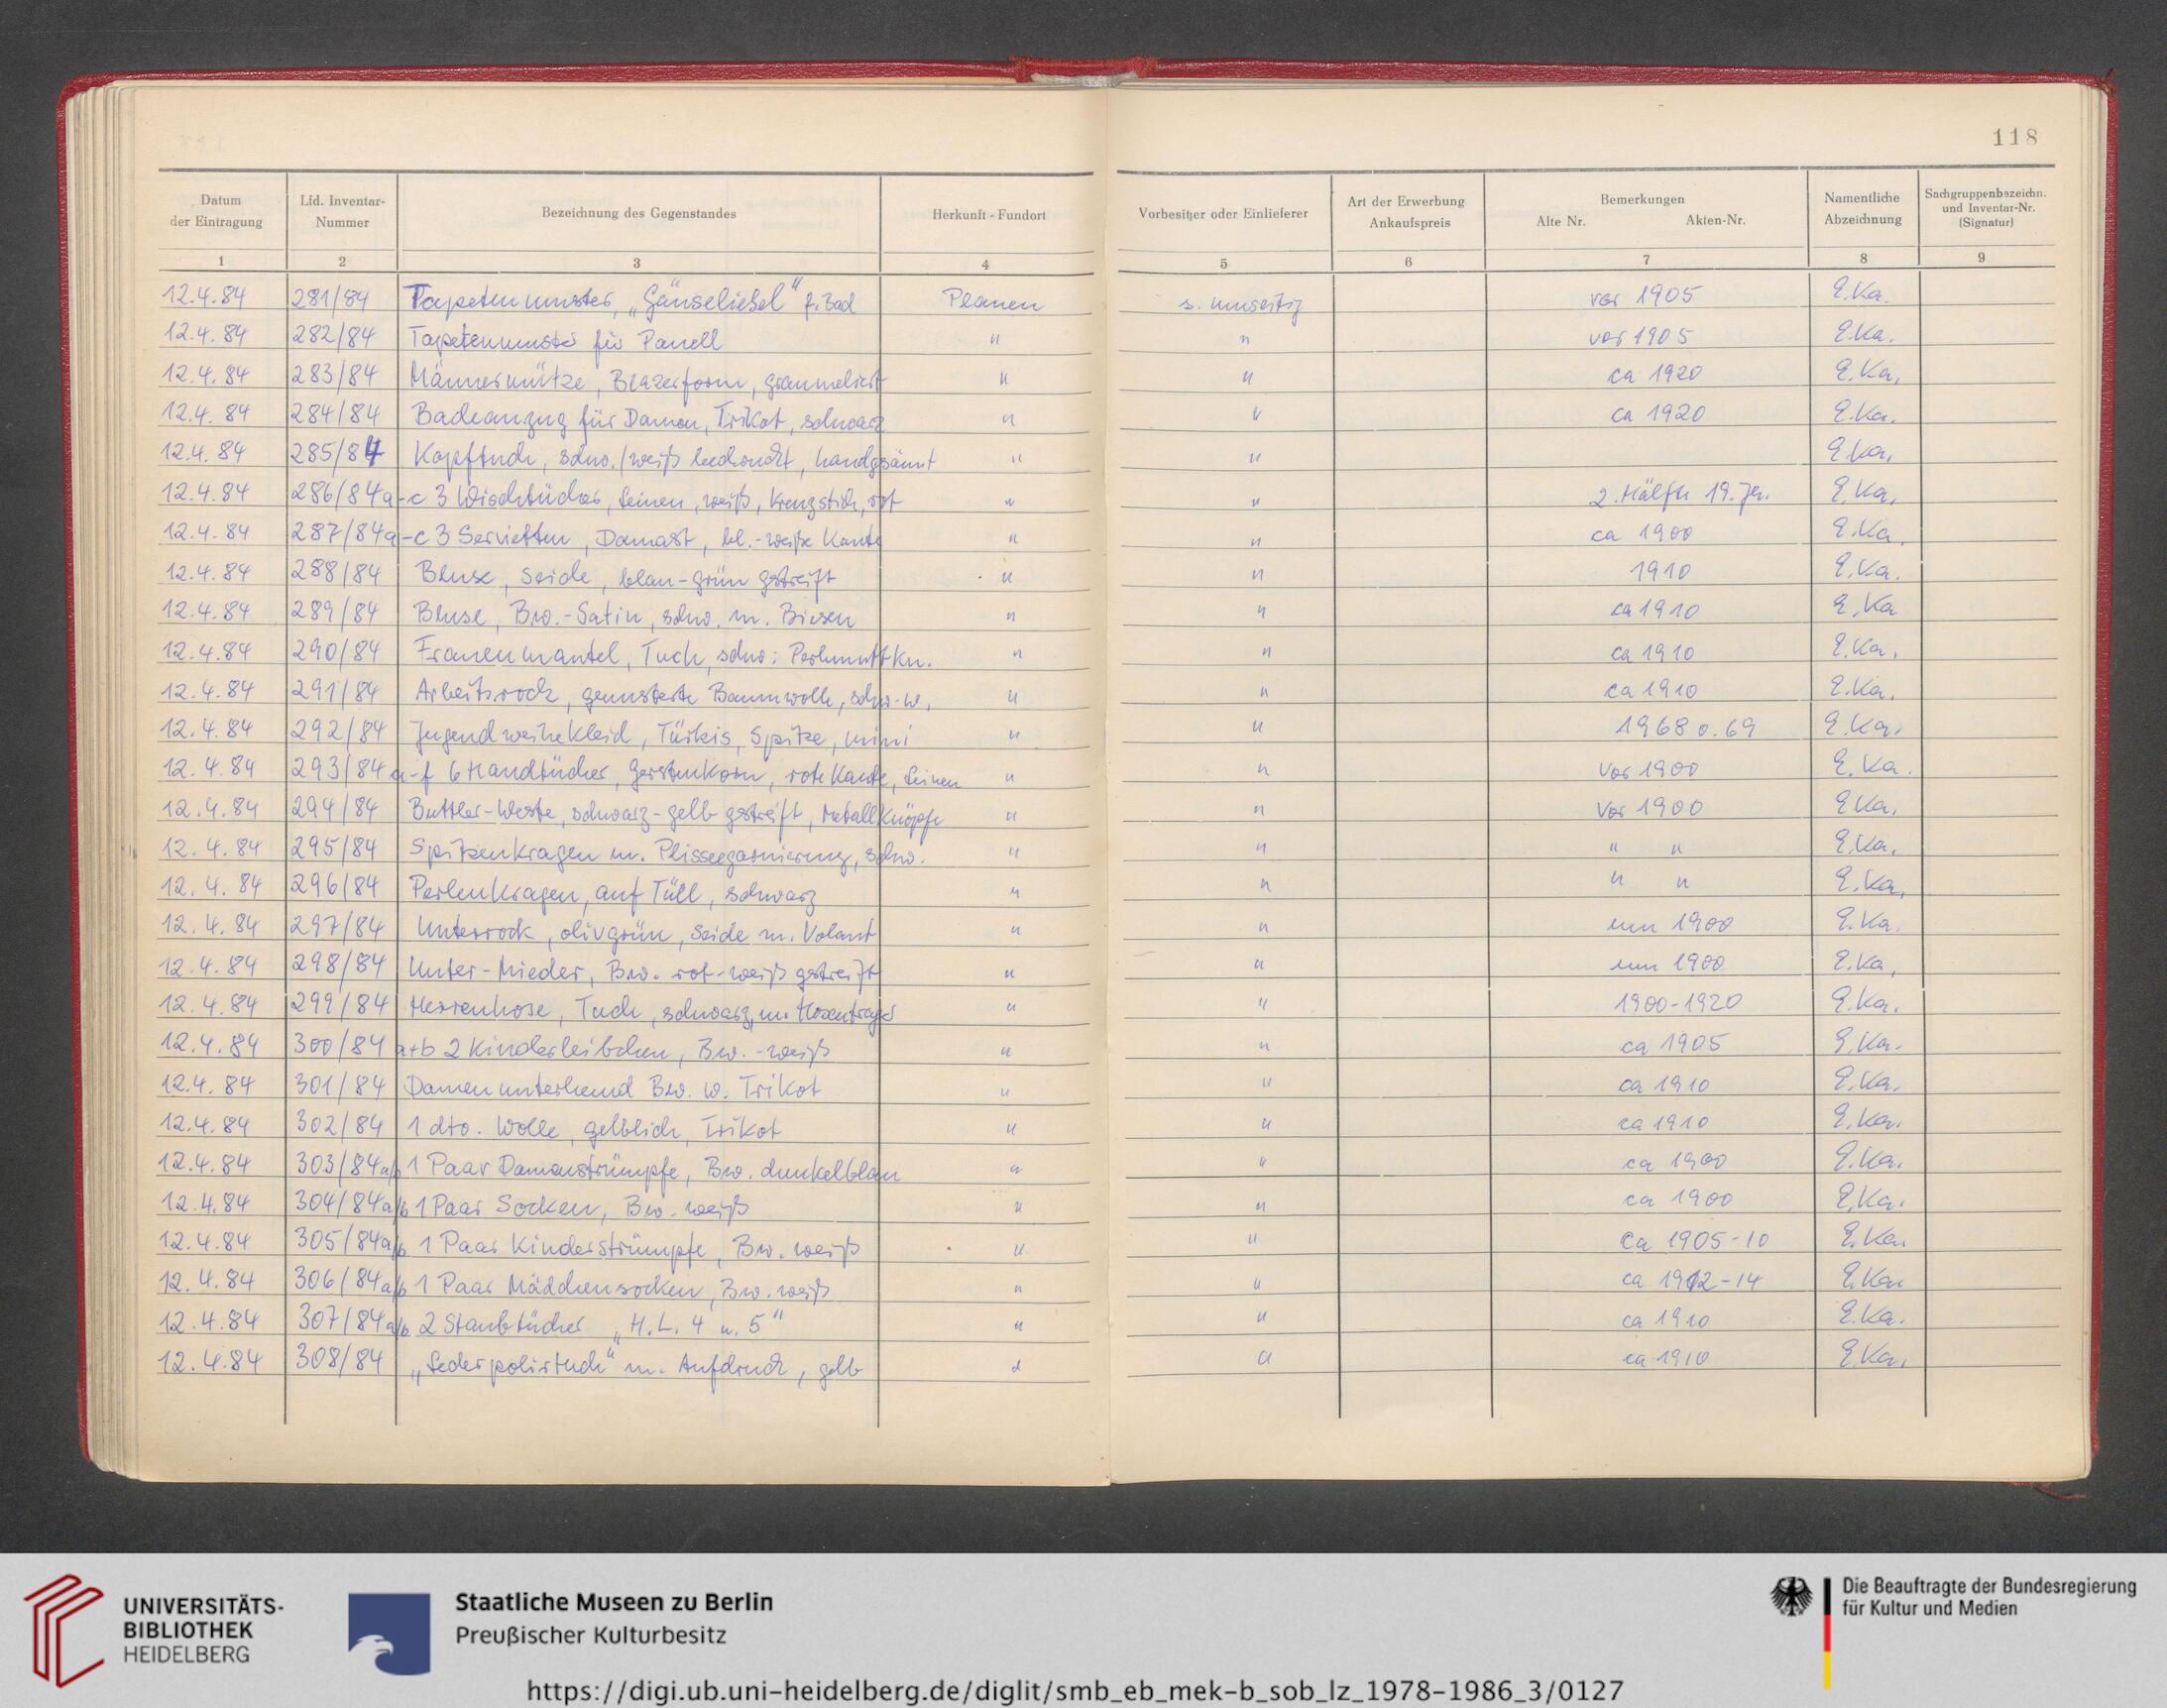 118
Datum der Eintragung | Lfd. Inventar-Nummer | Bezeichnung des Gegenstandes | Herkunft - Fundort | Vorbesitzer oder Einlieferer | Art der Erwerbung Ankaufspreis | Bemerkungen Alte Nr. Akten-Nr. | Namentliche Abzeichnung | Sachgruppenbezeichn. und Inventar-Nr. (Signatur)
1 | 2 | 3 | 4 | 5 | 6 | 7 | 8 | 9
12.4.84 | 281/84 | Tapetenmuster, „Gänseliesel“ f. Bad | Plauen | s. umseitig | vor 1905 | E.Ka.
12.4.84 | 282/84 | Tapetenmuster für Panell | " | " | vor 1905 | E.Ka.
12.4.84 | 283/84 | Männermütze, Blazerform, graumeliert | " | " | ca 1920 | E.Ka.
12.4.84 | 284/84 | Badeanzug für Damen, Trikot, schwarz | " | " | ca 1920 | E.Ka.
12.4.84 | 285/84 | Kopftuch, schw./weiß bedruckt, handgesäumt | " | " | E.Ka.
12.4.84 | 286/84a-c | 3 Wischtücher, Leinen, weiß, Kreuzstich, rot | " | " | 2. Hälfte 19. Jh. | E.Ka.
12.4.84 | 287/84a-c | 3 Servietten, Damast, bl.-weiße Kante | " | " | ca 1900 | E.Ka.
12.4.84 | 288/84 | Bluse, Seide, blau-grün gestreift | " | " | 1910 | E.Ka.
12.4.84 | 289/84 | Bluse, Bw.-Satin, schw. m. Biesen | " | " | ca 1910 | E.Ka
12.4.84 | 290/84 | Frauenmantel, Tuch, schw: Perlmuttkn. | " | " | ca 1910 | E.Ka.
12.4.84 | 291/84 | Arbeitsrock, gemusterte Baumwolle, schw-w. | " | " | ca 1910 | E.Ka.
12.4.84 | 292/84 | Jugendweihekleid, Türkis, Spitze, mini | " | " | 1968 o. 69 | E.Ka.
12.4.84 | 293/84 a-f | 6 Handtücher, Gerstenkorn, rote Kante, Leinen | " | " | Vor 1900 | E.Ka.
12.4.84 | 294/84 | Buttler-Weste, schwarz-gelb gestreift, Metallknöpfe | " | " | Vor 1900 | E.Ka.
12.4.84 | 295/84 | Spitzenkragen m. Plisseegarnierung, schw. | " | " | " " | E.Ka.
12.4.84 | 296/84 | Perlenkragen, auf Tüll, schwarz | " | " | " " | E.Ka.
12.4.84 | 297/84 | Unterrock, olivgrün, Seide m. Volant | " | " | um 1900 | E.Ka.
12.4.84 | 298/84 | Unter-Mieder, Bw. rot-weiß gestreift | " | " | um 1900 | E.Ka.
12.4.84 | 299/84 | Herrenhose, Tuch, schwarz, m. Hosenträger | " | " | 1900-1920 | E.Ka.
12.4.84 | 300/84 a+b | 2 Kinderleibchen, Bw.-weiß | " | " | ca 1905 | E.Ka.
12.4.84 | 301/84 | Damenunterhemd Bw. w. Trikot | " | " | ca 1910 | E.Ka.
12.4.84 | 302/84 | 1 dto. Wolle, gelblich, Trikot | " | " | ca 1910 | E.Ka.
12.4.84 | 303/84a/b | 1 Paar Damenstrümpfe, Bw. dunkelblau | " | " | ca 1900 | E.Ka.
12.4.84 | 304/84a/b | 1 Paar Socken, Bw. weiß | " | " | ca 1900 | E.Ka.
12.4.84 | 305/84a/b | 1 Paar Kinderstrümpfe, Bw. weiß | " | " | Ca 1905-10 | E.Ka.
12.4.84 | 306/84a/b | 1 Paar Mädchensocken, Bw. weiß | " | " | ca 1912-14 | E.Ka.
12.4.84 | 307/84a/b | 2 Staubtücher „H.L. 4 u. 5“ | " | " | ca 1910 | E.Ka.
12.4.84 | 308/84 | „Lederpoliertuch“ m. Aufdruck, gelb | " | " | ca 1910 | E.Ka.
UNIVERSITÄTS-
BIBLIOTHEK
HEIDELBERG
Staatliche Museen zu Berlin
Preußischer Kulturbesitz
Die Beauftragte der Bundesregierung
für Kultur und Medien
https://digi.ub.uni-heidelberg.de/diglit/smb_eb_mek-b_sob_lz_1978-1986_3/0127